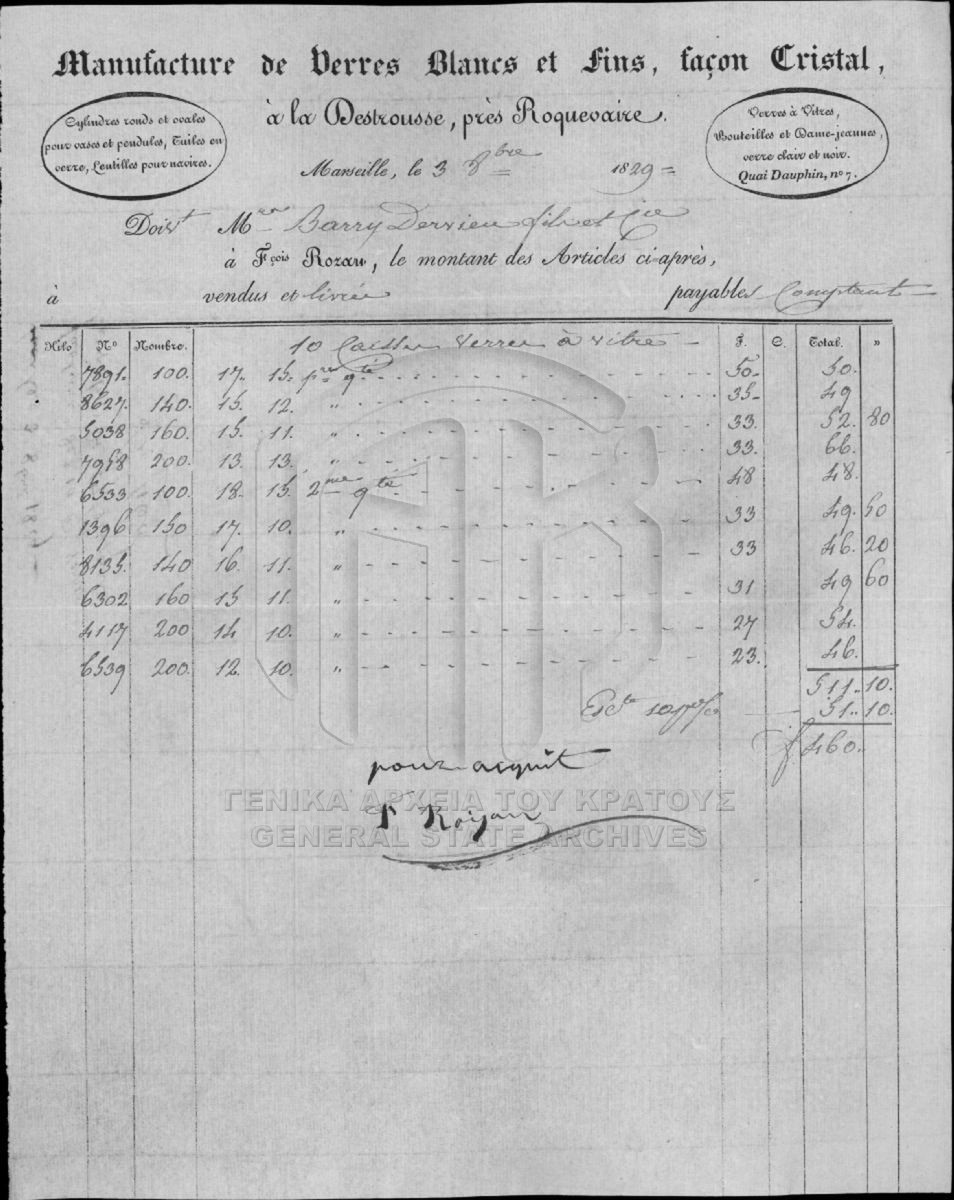 Manufacture de Verres Blancs et Fins, façon Cristal,
Cylindres ronds et ovales
pour vases et pendules, Tuiles en
verre, Lentilles pour navires.
à la Destrousse, près Roquevaire.
Verres à Vitres,
Bouteilles et Dame-jeannes,
verre clair et noir.
Quai Dauphin, nº 7.
Marseille, le 3 8bre 1829
Doivt Mrs Barry Dervieu fils et Cie
à Fçois Rozan, le montant des Articles ci-après,
à vendus et livrés payables Comptant
Kilo Nº Nombre. 10 Caisses Verres à vitres F. C. Total. »
7891. 100. 17. 15. pre qté 50. 50.
8627. 140. 15. 12. " 35. 49
5038 160. 15. 11. " 33. 52. 80
7958 200. 13. 13. " 33. 66.
6533 100. 18. 15. 2me qté 48 48.
1396 150 17. 10. " 33 49. 50
8135. 140 16. 11. " 33 46. 20
6302 160 15 11. " 31 49 60
4117 200 14 10. " 27 54.
6539 200. 12. 10. " 23. 46.
511. 10.
Escte 10 p% 51. 10.
f 460.
pour acquit
F Rozan
ΓΕΝΙΚΑ ΑΡΧΕΙΑ ΤΟΥ ΚΡΑΤΟΥΣ
GENERAL STATE ARCHIVES